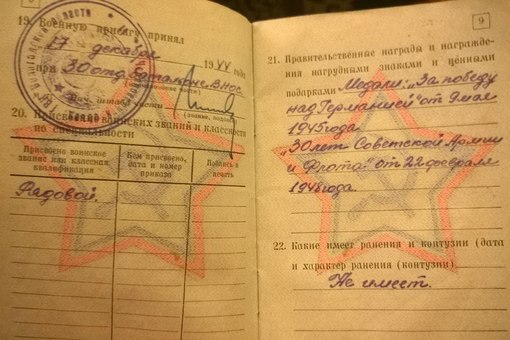 19. Военную присягу принял
17 декабря 1944 года
при 30 отд. батальоне ВНОС
Нач. штаба
(звание, подпись)
20. Присвоение воинских званий и классности
по специальности
Присвоено воинское звание или классная квалификация
Кем присвоено, дата и номер приказа
Подпись и печать
Рядовой.
9
21. Правительственные награды и награжде-
ния нагрудными знаками и ценными
подарками Медали: „За победу
над Германией" от 9 мая
1945 года
„30 лет Советской Армии
и Флота" от 22 февраля
1948 года.
22. Какие имеет ранения и контузии (дата
и характер ранения (контузии)
Не имеет.